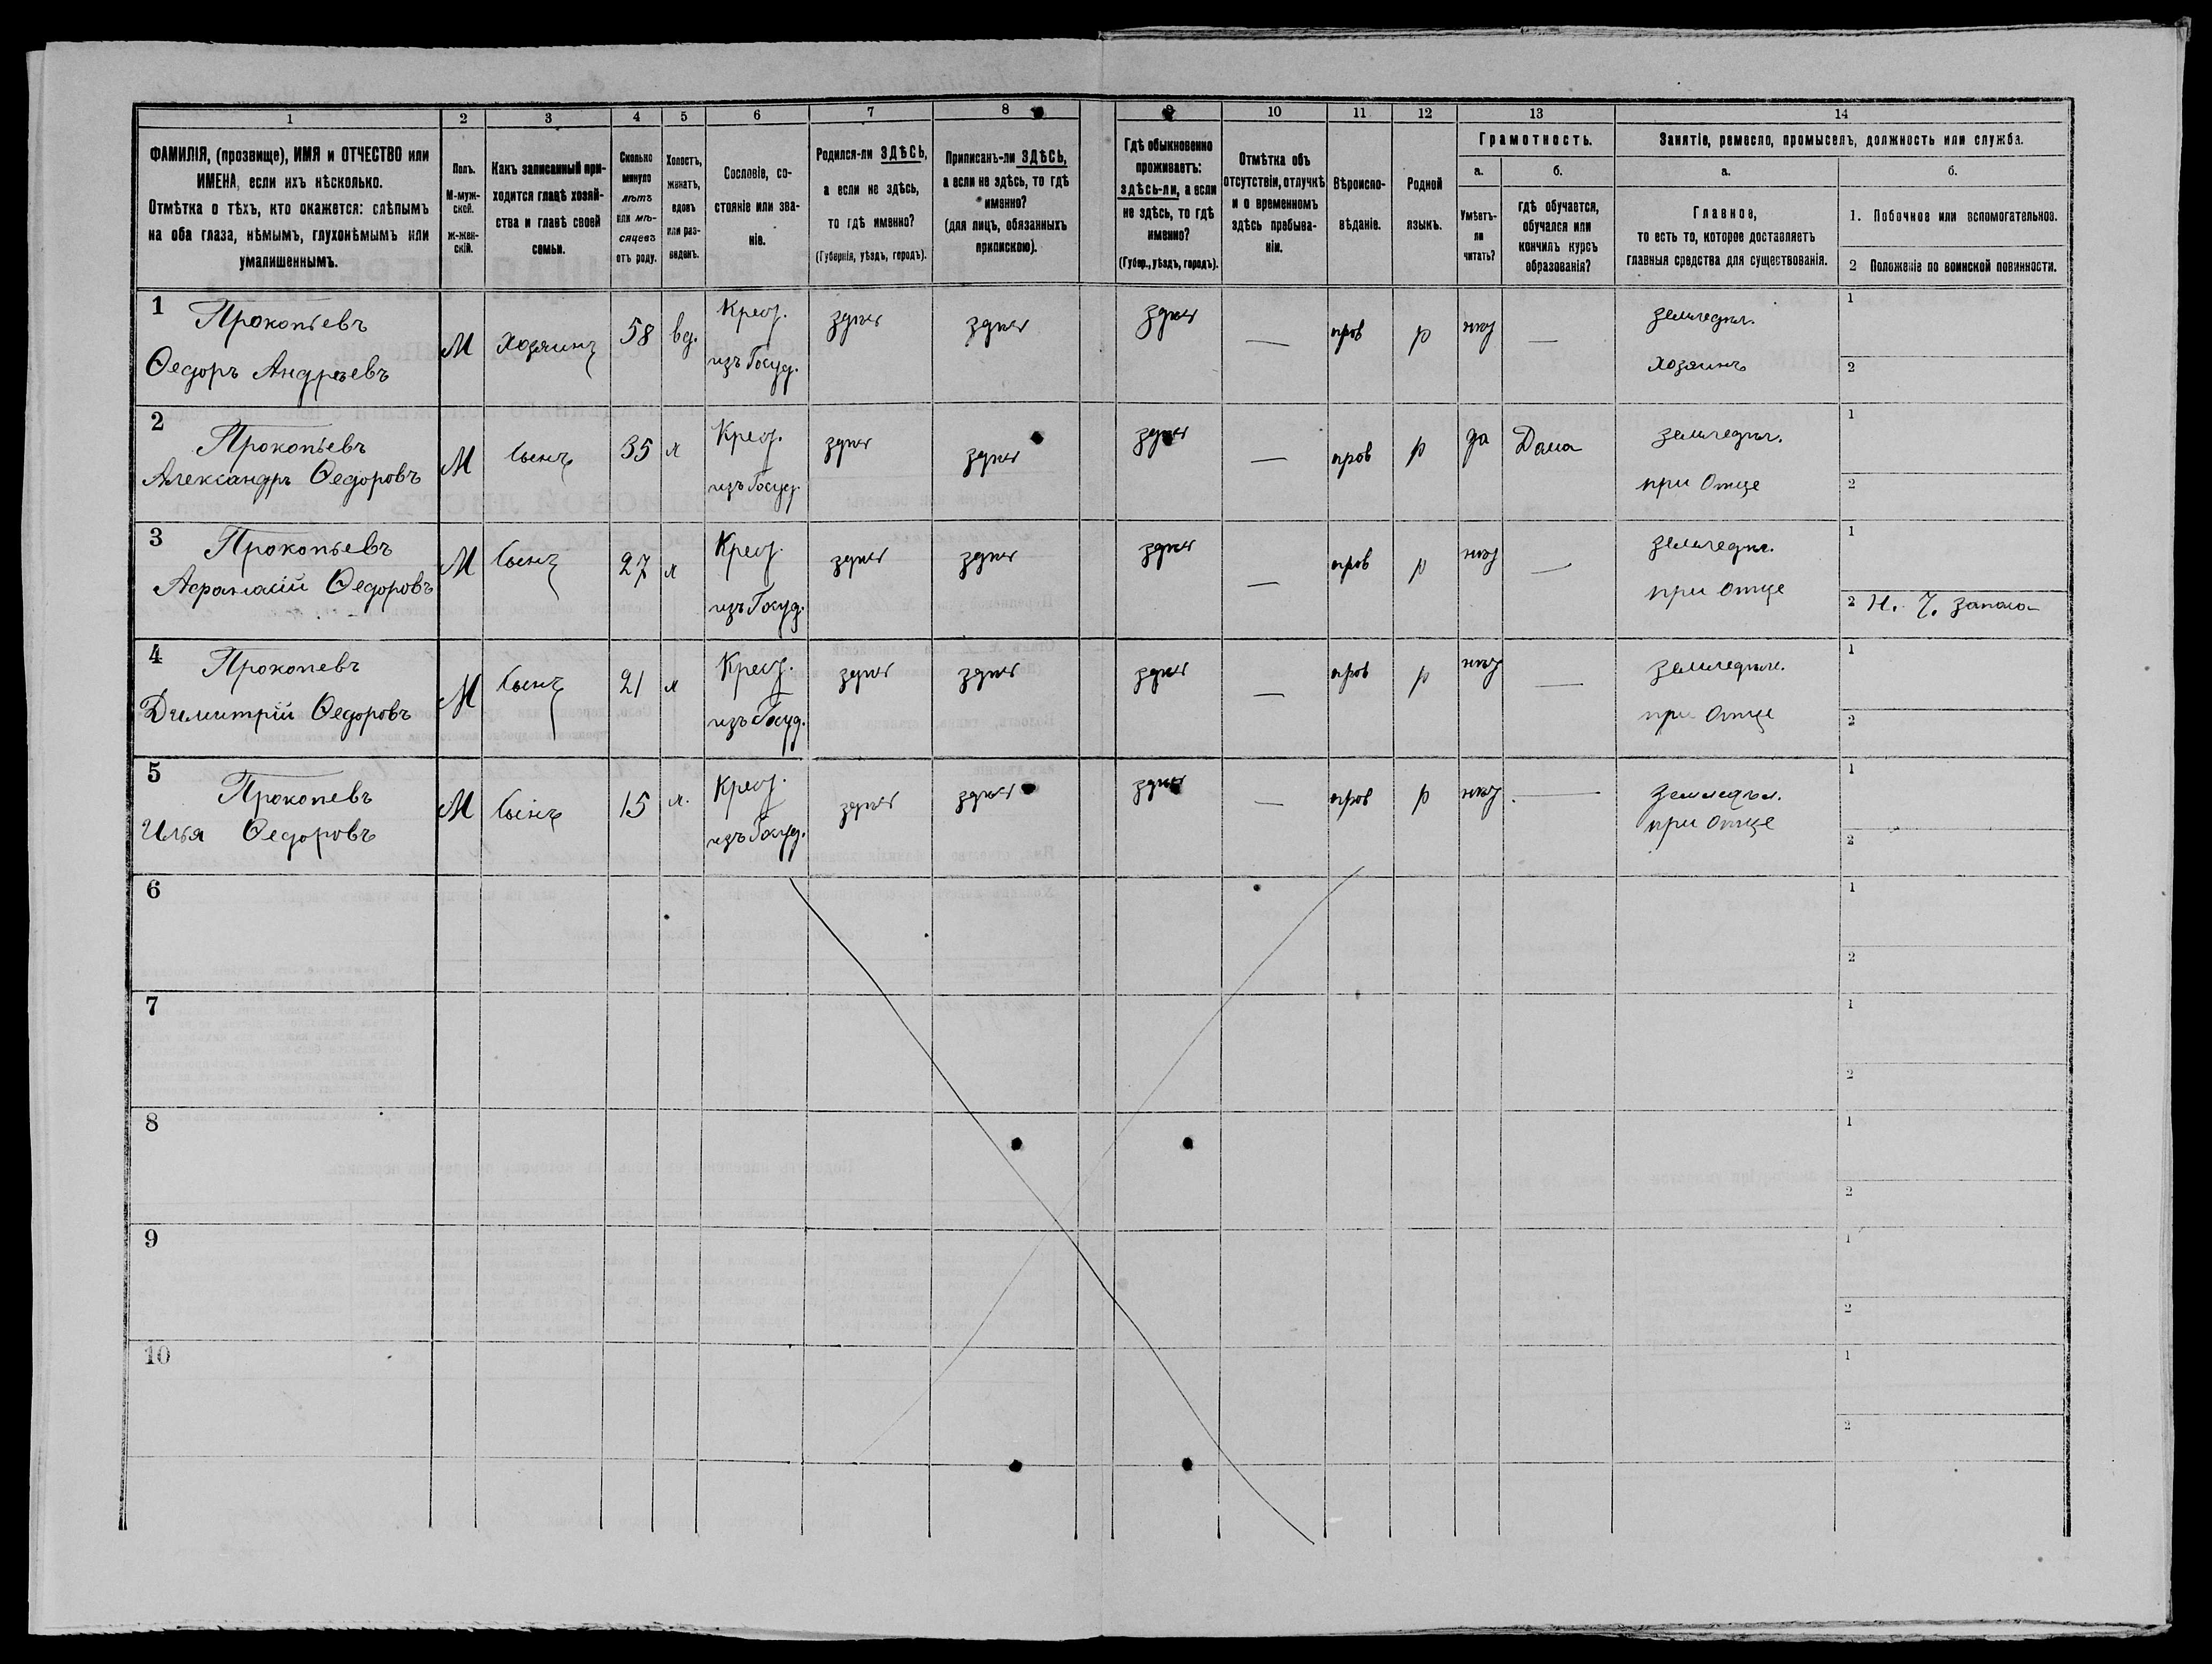 1 2 3 4 5 6 7 8 9 10 11 12 13 14
ФАМИЛІЯ, (прозвище), ИМЯ и ОТЧЕСТВО или
ИМЕНА, если ихъ нѣсколько.
Отмѣтка о тѣхъ, кто окажется: слѣпымъ
на оба глаза, нѣмымъ, глухонѣмымъ или
умалишеннымъ.
Полъ.
М-муж-
ской.
ж-жен-
скій.
Какъ записанный при-
ходится главѣ хозяй-
ства и главѣ своей
семьи.
Сколько
минуло
лѣтъ
или мѣ-
сяцевъ
отъ роду.
Холостъ,
женатъ,
вдовъ
или раз-
веденъ.
Сословіе, со-
стояніе или зва-
ніе.
Родился-ли ЗДѢСЬ,
а если не здѣсь,
то гдѣ именно?
(Губернія, уѣздъ, городъ).
Приписанъ-ли ЗДѢСЬ,
а если не здѣсь, то гдѣ
именно?
(для лицъ, обязанныхъ
припискою).
Гдѣ обыкновенно
проживаетъ:
здѣсь-ли, а если
не здѣсь, то гдѣ
именно?
(Губер., уѣздъ, городъ).
Отмѣтка объ
отсутствіи, отлучкѣ
и о временномъ
здѣсь пребыва-
ніи.
Вѣроиспо-
вѣданіе.
Родной
языкъ.
Грамотность.
а.
Умѣетъ-
ли
читать?
б.
гдѣ обучается,
обучался или
кончилъ курсъ
образованія?
Занятіе, ремесло, промыселъ, должность или служба.
а.
Главное,
то есть то, которое доставляетъ
главныя средства для существованія.
б.
1. Побочное или вспомогательное.
2 Положеніе по воинской повинности.
1 Прокопьевъ
Ѳедоръ Андреевъ
М Хозяинъ 58 вд. Крест.
изъ Госуд.
здѣсь здѣсь здѣсь — прав р нѣт — земледѣл.
хозяинъ
1
2
2 Прокопьевъ
Александръ Ѳедоровъ
М Сынъ 35 х Крест.
изъ Госуд.
здѣсь здѣсь здѣсь — прав р да Дома земледѣл.
при Отце
1
2
3 Прокопьевъ
Афанасій Ѳедоровъ
М Сынъ 27 х Крест.
изъ Госуд.
здѣсь здѣсь здѣсь — прав р нѣт — земледѣл.
при отце
1
2 Н. Ч. запаса
4 Прокопевъ
Димитрій Ѳедоровъ
М Сынъ 21 х Крест.
изъ Госуд.
здѣсь здѣсь здѣсь — прав р нѣт — земледѣл.
при Отце
1
2
5 Прокопевъ
Илья Ѳедоровъ
М Сынъ 15 х. Крест.
изъ Госуд.
здѣсь здѣсь здѣсь — прав р нѣт — земледѣл.
при Отце
1
2
6
1
2
7
1
2
8
1
2
9
1
2
10
1
2